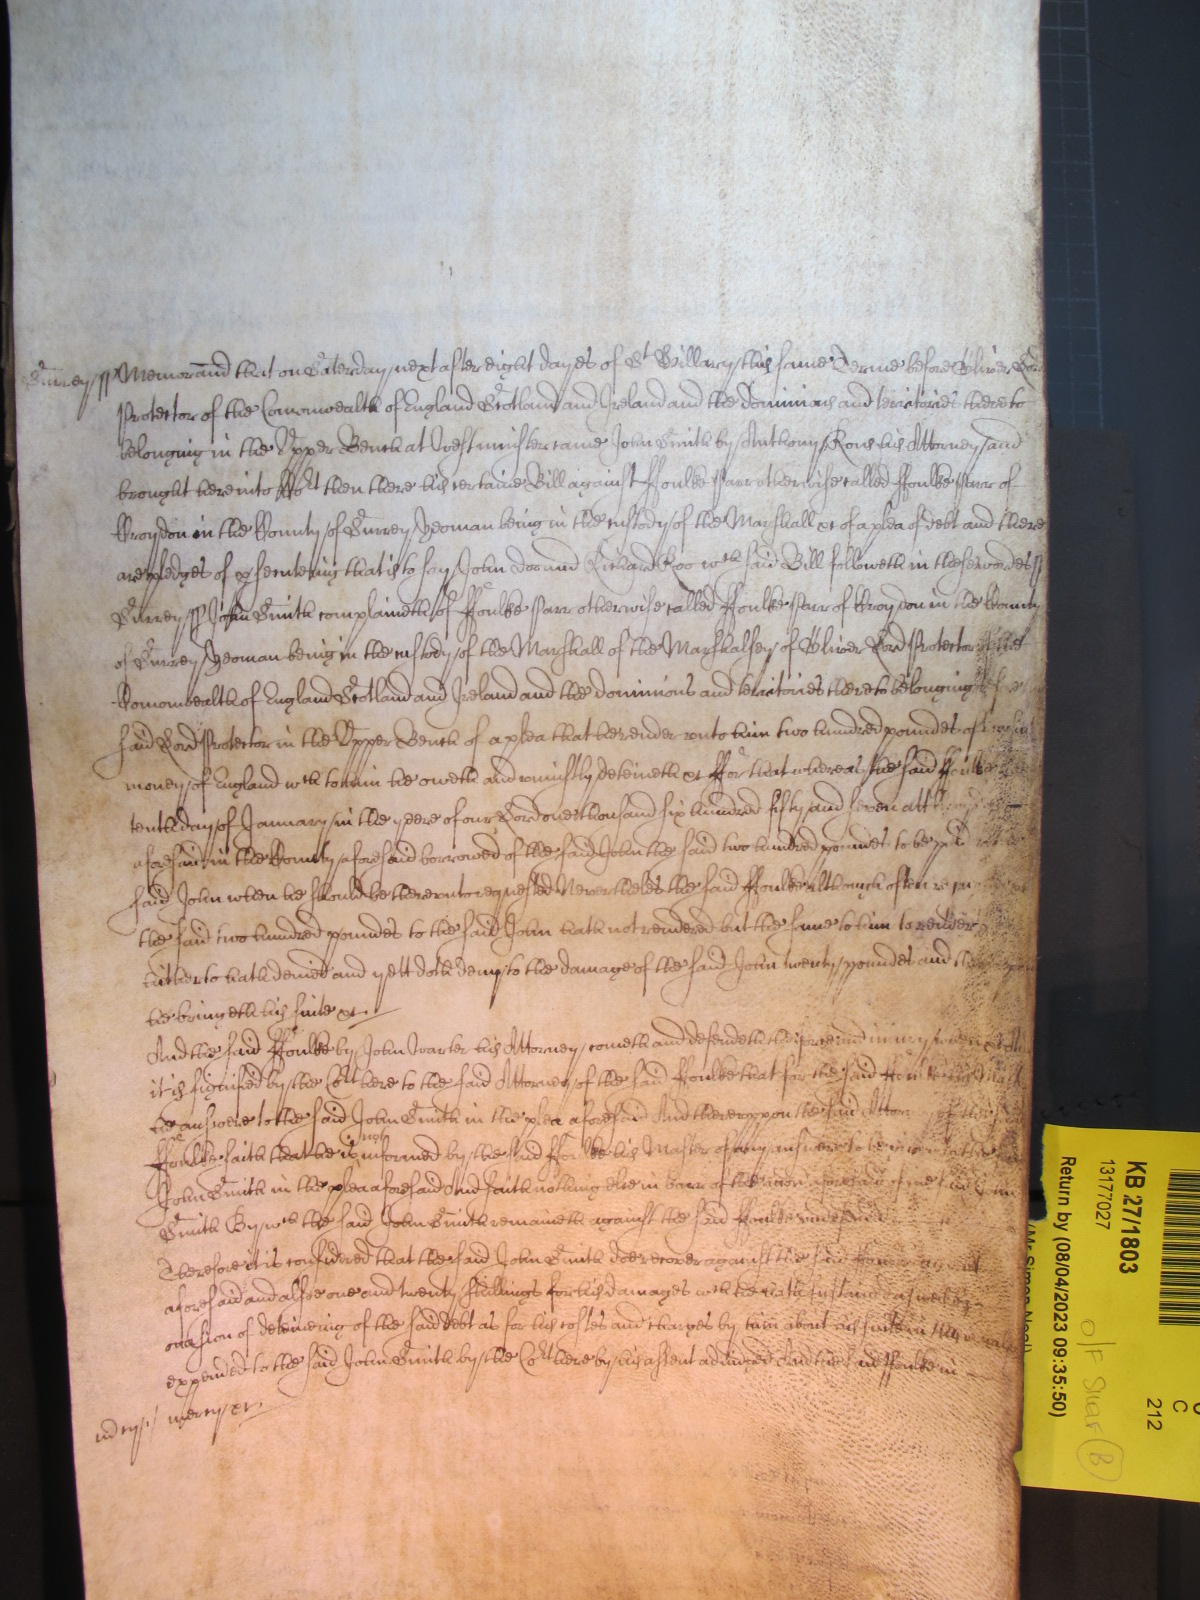 Surrey ss Memorand that on Saterday next after eight dayes of St Hillary this same Terme before Oliver Lord
Protector of the Comonwealth of England Scotland and Ireland and the dominions and territories thereto
belonging in the Upper Bench at Westminster came John Smith by Anthony Rous his Attorney and
brought here into Cort then there his certaine Bill against Ffoulke Parr otherwise called Ffoulke Parr of
Croydon in the County of Surrey Yeoman being in the custody of the Marshall &c of a plea of debt and there
are pledges of psecuteing that is to say John Doo and Richard Roo wch said Bill followeth in these wordes ss
Surrey ss John Smith complaineth of Ffoulke Parr otherwise called Ffoulke Parr of Croydon in the County
of Surrey Yeoman being in the custody of the Marshall of the Marshalsey of Oliver Lord Protector of the
Comonwealth of England Scotland and Ireland and the dominions and territories thereto belonging
said Lord Protector in the Upper Bench of a plea that he render unto him two hundred poundes of
money of England wch to him he oweth and uniustly deteineth &c Ffor that whereas the said Ffoulke the
tenth day of January in the yeere of our Lord one thousand six hundred fifty and seven att
aforesaid in the County aforesaid borrowed of the said John the said two hundred poundes to be paid to the
said John when he should be thereunto requested Neverthelesse the said Ffoulke although often requested
the said two hundred poundes to the said John hath not rendered but the same to him to render
hitherto hath denied and yett doth deny to the damage of the said John twenty poundes and
he bringeth his suite &c
And the said Ffoulke by John Warter his Attorney cometh and defendeth the force and iniury when &c And
it is signified by the Cort here to the said Attorney of the said Ffoulke that for the said Ffoulke his Master
he answere to the said John Smith in the plea aforesaid And thereuppon the said Attorney of the said
Ffoulke saith that he is not informed by the said Ffoulke his Master of any answere to be given to the said
John Smith in the plea aforesaid And saith nothing else in barr of the accion aforesaid of the said John
Smith By wch the said John Smith remaineth against the said Ffoulke undefended
Therefore it is considered that the said John Smith doe recover against the said Ffoulke
aforesaid and alsoe one and twenty shillings for his damages wch he hath susteined aswell by
occasion of deteineing of the said debt as for his costes and charges by him about his suite in this behalfe
expended to the said John Smith by the Cort here by his assent adiudged And the said Ffoulke in
mercy &c
KB 27/1803
13177027
Return by (08/04/2023 09:35:50)
C
212
O/F Shar B
(Mr Simon Neal)